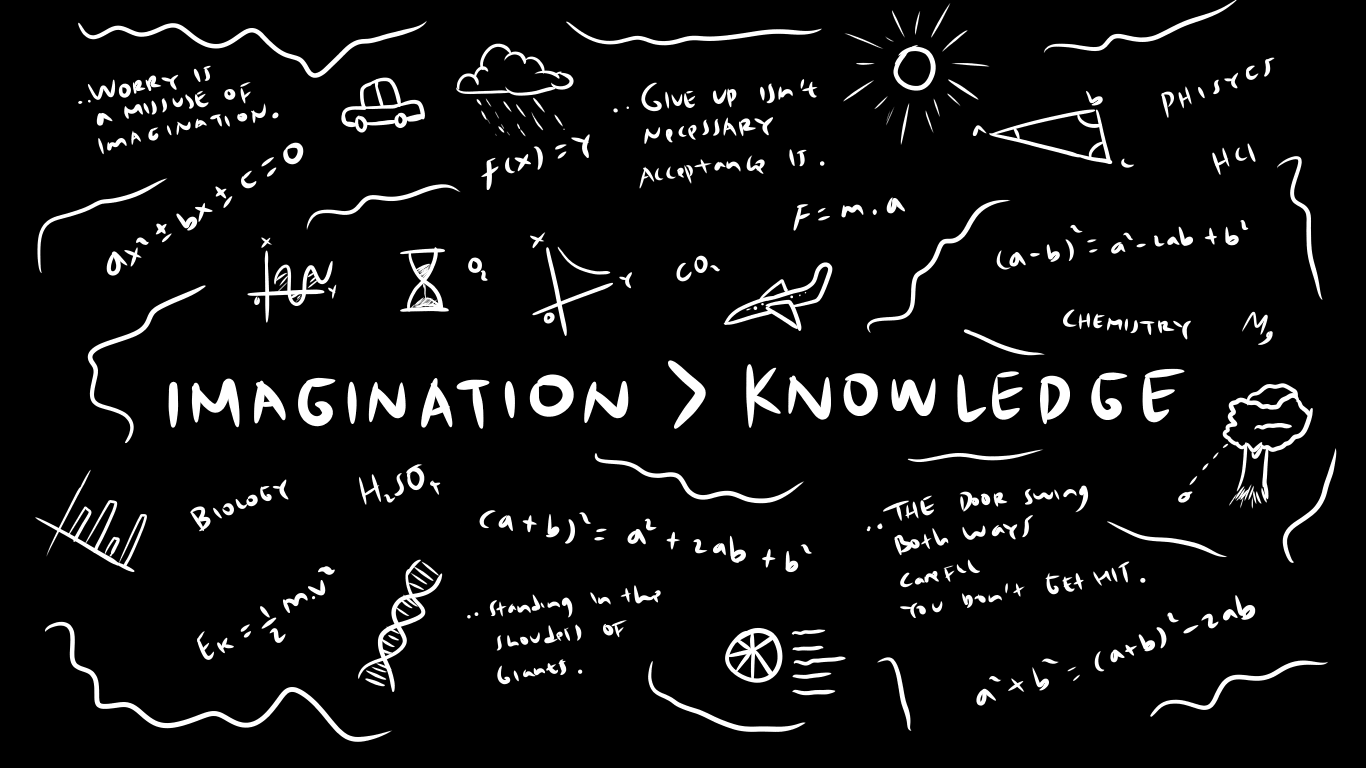 ..WORRY IS
A MISSUSE OF
IMAGINATION.
ax² ± bx ± c = 0
f(x) = Y
..GIVE UP ISn't
NECESSARY
ACCeptance IS.
a
b
c
PHISYCS
HCl
F = m . a
(a-b)² = a² - 2ab + b²
X
Y
0
O₂
X
Y
0
CO₂
CHEMISTRY
IMAGINATION > KNOWLEDGE
BIOLOGY
H₂SO₄
(a+b)² = a² + 2ab + b²
..THE DOOR SWING
Both WAYS
CAREFUL
YOU DON't GET HIT.
EK = 1/2 m.v²
..Standing in the
shoulders OF
Giants.
a² + b² = (a+b)² - 2ab